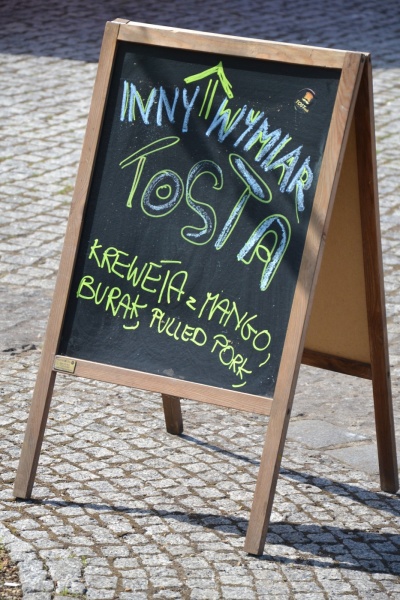 INNY WYMIAR
TOSTA
KREWETA z MANGO,
BURAK, PULLED PORK,